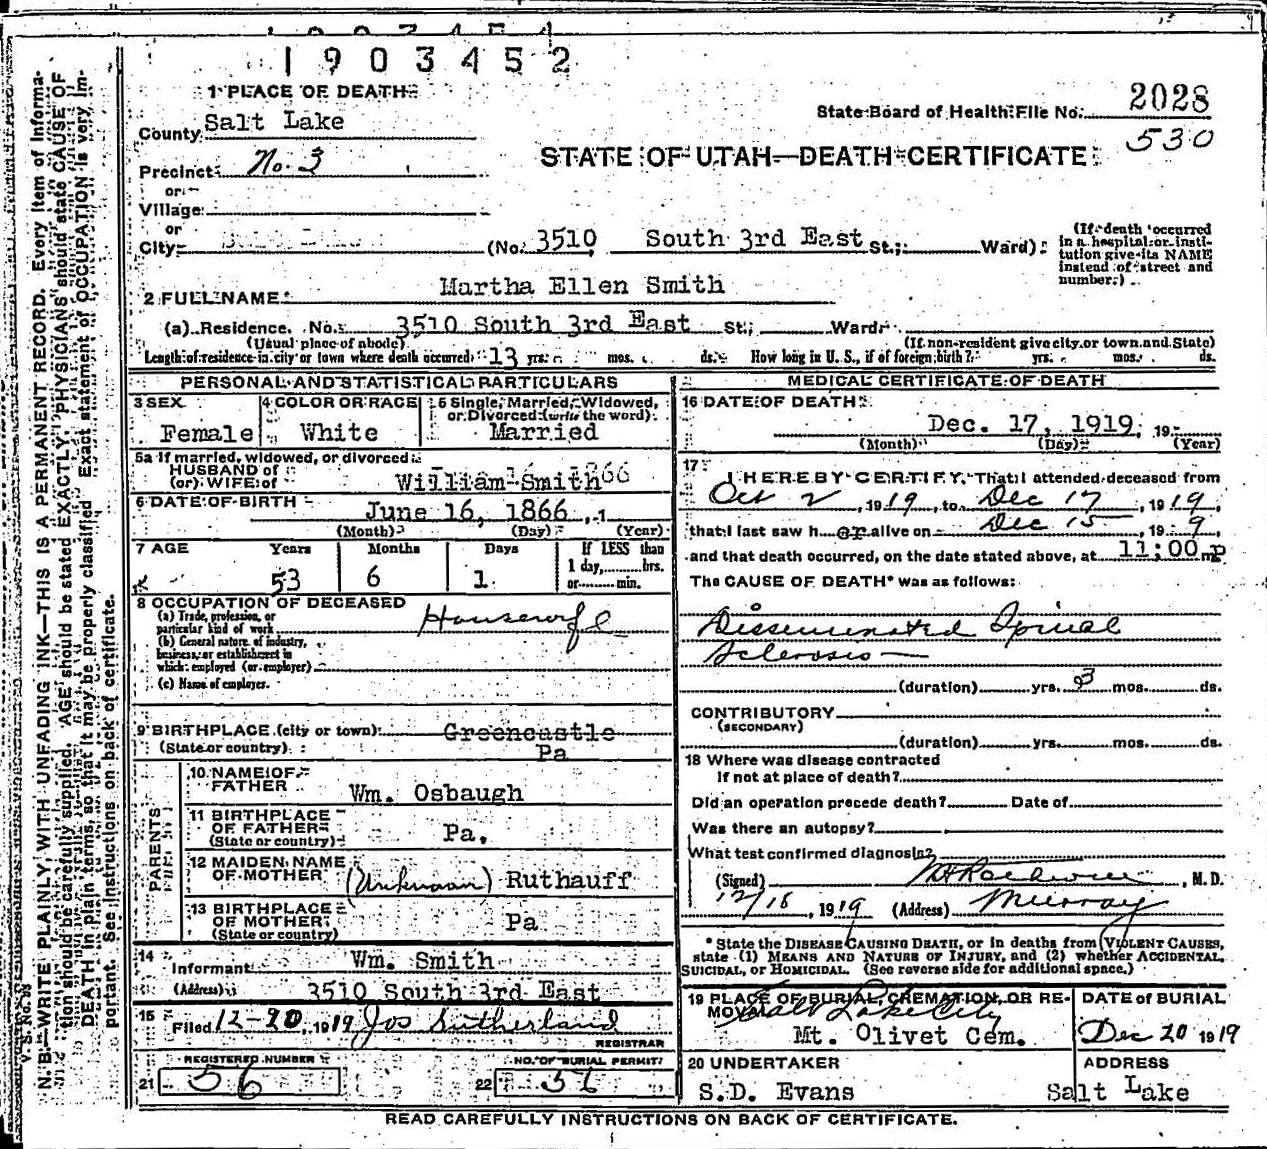 1903452
1 PLACE OF DEATH
State Board of Health File No. 2028
County Salt Lake
530
STATE OF UTAH—DEATH CERTIFICATE
Precinct No. 3
or
Village
or
City (No. 3510 South 3rd East St.; Ward)
(If death occurred in a hospital or insti-
tution give its NAME
instead of street and
number.)
2 FULL NAME Martha Ellen Smith
(a) Residence. No. 3510 South 3rd East St.; Ward
(Usual place of abode) (If non-resident give city or town and State)
Length of residence in city or town where death occurred 13 yrs. mos. ds. How long in U. S., if of foreign birth? yrs. mos. ds.
PERSONAL AND STATISTICAL PARTICULARS
3 SEX
Female
4 COLOR OR RACE
White
5 Single, Married, Widowed,
or Divorced (write the word)
Married
5a If married, widowed, or divorced
HUSBAND of
(or) WIFE of William Smith
6 DATE OF BIRTH June 16, 1866
(Month) (Day) (Year)
7 AGE Years Months Days If LESS than
1 day, hrs.
or min.
53 6 1
8 OCCUPATION OF DECEASED
(a) Trade, profession, or
particular kind of work Housewife
(b) General nature of industry,
business, or establishment in
which employed (or employer)
(c) Name of employer.
9 BIRTHPLACE (city or town) Greencastle
(State or country) Pa
PARENTS
10 NAME OF
FATHER Wm. Osbaugh
11 BIRTHPLACE
OF FATHER Pa.
(State or country)
12 MAIDEN NAME
OF MOTHER (Unknown) Ruthauff
13 BIRTHPLACE
OF MOTHER Pa
(State or country)
14
Informant Wm. Smith
(Address) 3510 South 3rd East
15
Filed 12-20, 1919 Jos Sutherland
REGISTRAR
REGISTERED NUMBER
21 56
NO. OF BURIAL PERMIT
22
MEDICAL CERTIFICATE OF DEATH
16 DATE OF DEATH
Dec. 17, 1919, 19
(Month) (Day) (Year)
17
I HEREBY CERTIFY, That I attended deceased from
Oct 2, 1919, to Dec 17, 1919,
that I last saw her alive on Dec 15 19 9,
and that death occurred, on the date stated above, at 11:00 p m
The CAUSE OF DEATH* was as follows:
Disseminated Spinal
Sclerosis
(duration) yrs. 3 mos. ds.
CONTRIBUTORY
(SECONDARY)
(duration) yrs. mos. ds.
18 Where was disease contracted
If not at place of death?
Did an operation precede death? Date of
Was there an autopsy?
What test confirmed diagnosis?
(Signed) , M. D.
12/18, 1919 (Address) Murray
* State the DISEASE CAUSING DEATH, or in deaths from VIOLENT CAUSES,
state (1) MEANS AND NATURE OF INJURY, and (2) whether ACCIDENTAL,
SUICIDAL, OR HOMICIDAL. (See reverse side for additional space.)
19 PLACE OF BURIAL, CREMATION, OR RE-
MOVAL Salt Lake City
Mt. Olivet Cem.
DATE of BURIAL
Dec 20 1919
20 UNDERTAKER
S.D. Evans
ADDRESS
Salt Lake
READ CAREFULLY INSTRUCTIONS ON BACK OF CERTIFICATE.
N. B.—WRITE PLAINLY, WITH UNFADING INK—THIS IS A PERMANENT RECORD. Every item of informa-
tion should be carefully supplied. AGE should be stated EXACTLY. PHYSICIANS should state CAUSE OF
DEATH in plain terms, so that it may be properly classified. Exact statement of OCCUPATION is very im-
portant. See instructions on back of certificate.